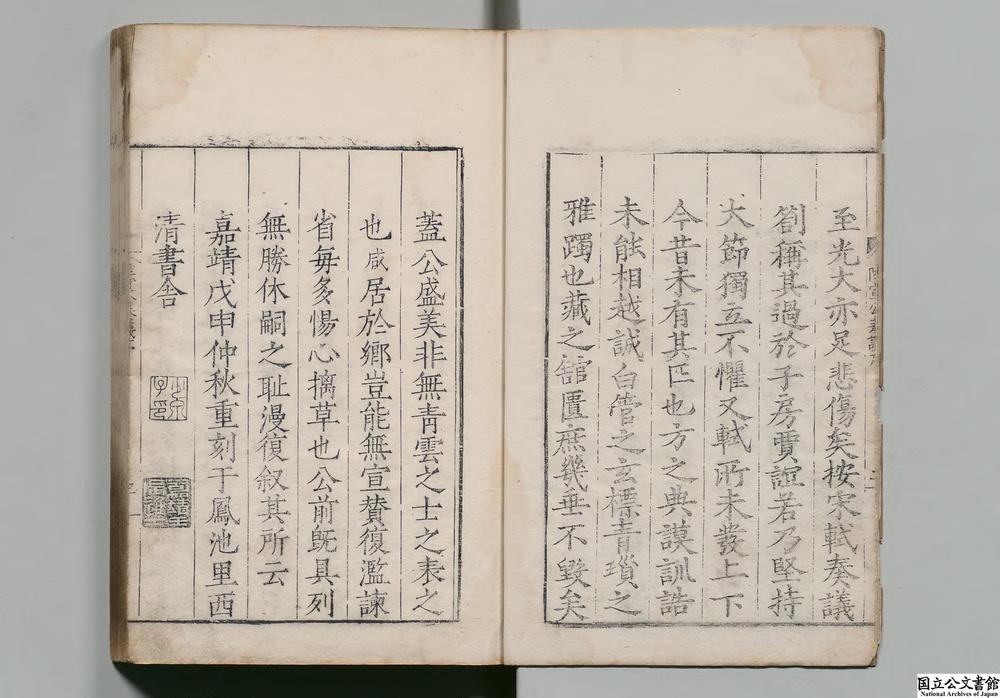 至光大亦足悲傷矣按宋軾奏議
劄稱其過於子房賈誼若乃堅持
大節獨立不懼又軾所未發上下
今昔未有其匹也方之典謨訓誥
未能相越誠白管之玄標青瑣之
雅躅也藏之舘匱庶幾垂不毀矣
蓋公盛美非無青雲之士之表之
也咸居於鄉豈能無宣賛復濫諫
省每多惕心摛草也公前旣具列
無勝休嗣之耻漫復叙其所云
嘉靖戊申仲秋重刻于鳳池里西
清書舍
国立公文書館
National Archives of Japan